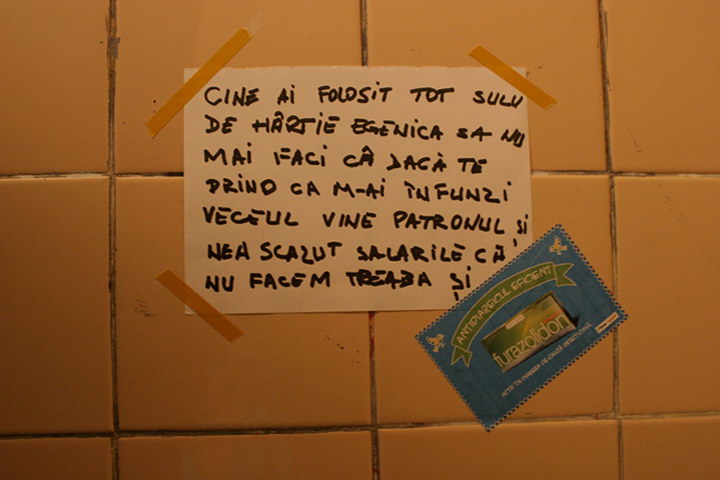 CINE AI FOLOSIT TOT SULU
DE HÂRTIE EGENICA SA NU
MAI FACI CÂ DACĂ TE
PRIND CA M-AI ÎNFUNZI
VECEUL VINE PATRONUL ȘI
NEA SCAZUT SALARILE CĂ
NU FACEM TREABA ȘI
ANTIDIAREICUL EFICIENT
furazolidon